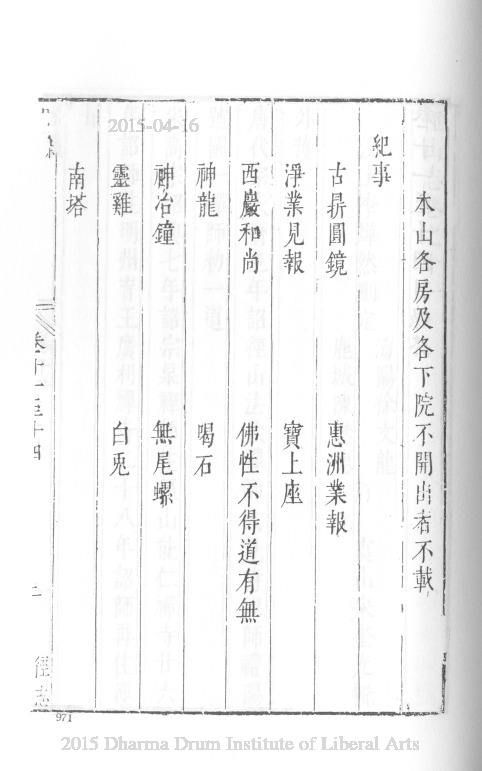 本山各房及各下院不開出者不載
紀事
古鼎圓鏡 惠洲業報
淨業見報 寶上座
西巖和尚 佛性不得道有無
神龍 喝石
神冶鐘 無尾螺
靈雞 白兎
南塔
卷十一至十四
二
徑志
971
2015-04-16
2015 Dharma Drum Institute of Liberal Arts